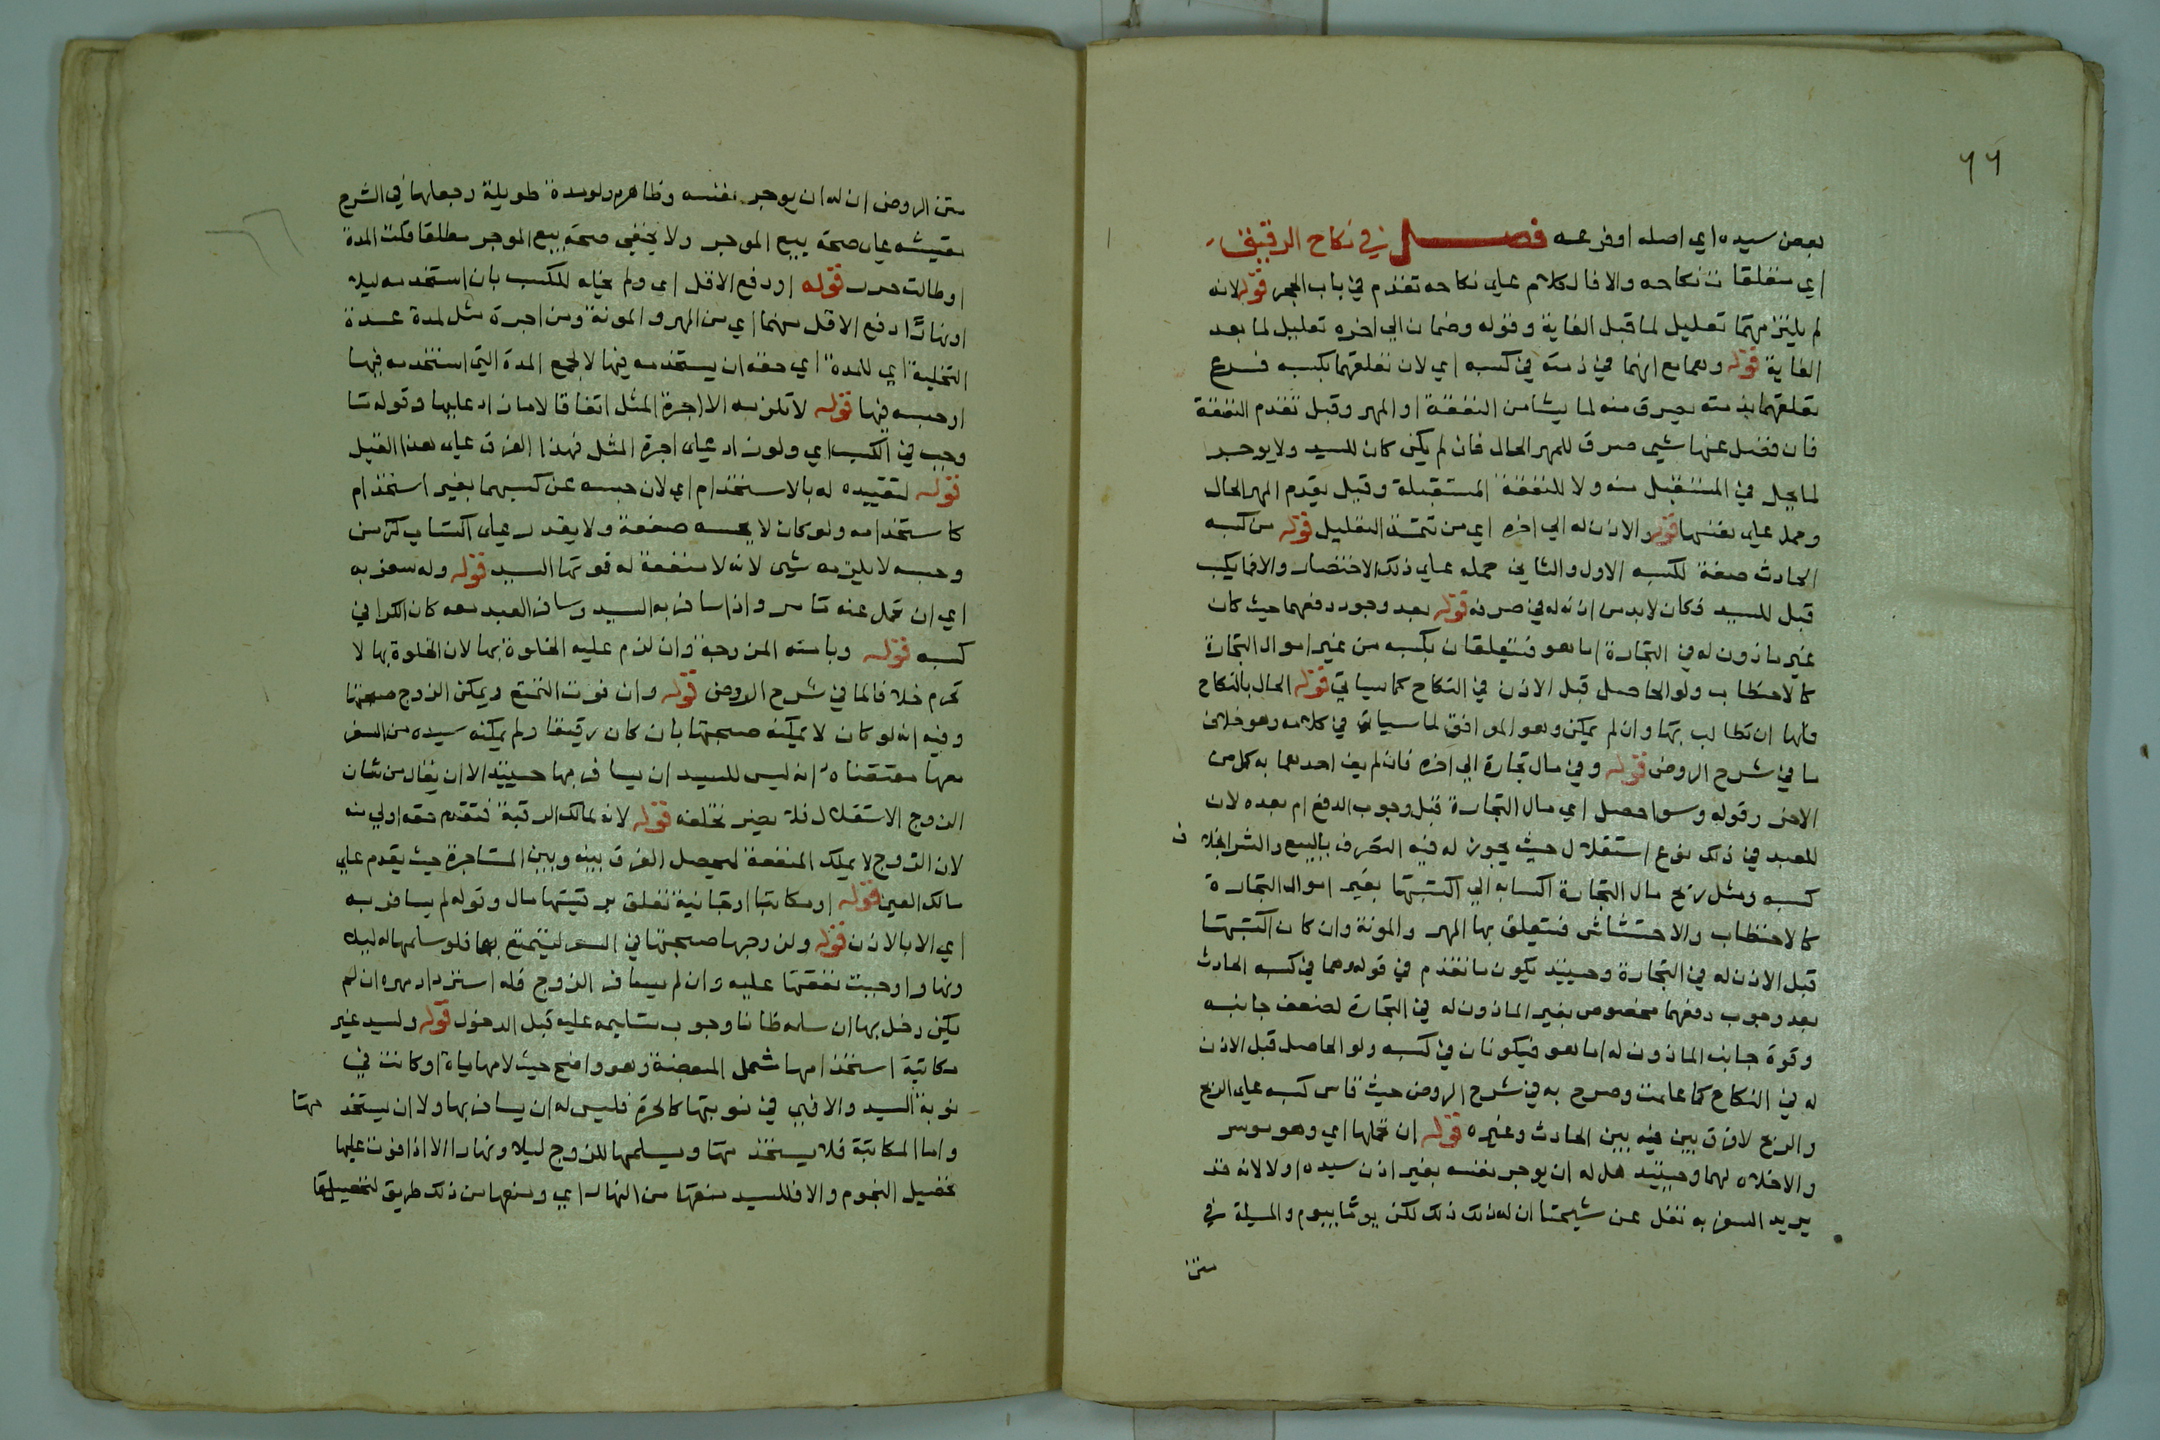 ٦٦
بعض سيده اي اصله او فرعه فصل في نكاح الرقيق
اي متعلقات نكاحه والا فالكلام علي نكاحه تقدم في باب الحجر قوله لانه
لم يلتزمهما تعليل لما قبل الغاية وقوله وضمان الي اخره تعليل لما بعد
الغاية قوله وهما مع انهما في ذمته في كسبه اي لان تعلقهما بكسبه فرع
تعلقهما بذمته يصرف منه لما يشا من النفقة او المهر وقيل تقدم النفقة
فان فضل عنها شي صرف للمهر الحال فان لم يكن كان للسيد ولا يوخر
لما يحل في المستقبل منه ولا للنفقة المستقبلة وقيل يقدم المهر الحال
وحمل علي نفسها قوله والاذن له الي اخره اي من تتمة التعليل قوله من كسبه
الحادث صفة لكسبه الاول والثاني حمله علي ذلك الاختصار والا فما يكسب
قبل للسيد فكان لابد من اذنه له في صرفه قوله بعد وجود دفعهما حيث كان
غير ماذون له في التجارة اما هو فتتعلقان بكسبه من غير اموال التجارة
كالاحتطاب ولو الحاصل قبل الاذن في النكاح كما سياتي قوله الحال بالنكاح
فلها ان تطالب بها وان لم يمكن وهو الموافق لما سياتي في كلامه وهو خلاف
ما في شرح الروض قوله وفي مال تجارة الي اخره فان لم يف احدهما به كمل من
الاخر وقوله وسوا حصل اي مال التجارة قبل وجوب الدفع ام بعده لان
للعبد في ذلك نوع استقلال حيث يجوز له فيه التصرف بالبيع والشرا بخلاف
كسبه ومثل ربح مال التجارة اكسابه الي اكتسبتها بغير اموال التجارة
كالاحتطاب والاحتشاش فتتعلق بها المهر والمونة وان كان اكتسبتها
قبل الاذن له في التجارة وحينيذ يكون ما تقدم في قوله وهما في كسبه الحادث
بعد وجوب دفعهما مخصوص بغير الماذون له في التجارة لضعف جانبه
وقوة جانب الماذون له اما هو فيكونان في كسبه ولو الحاصل قبل الاذن
له في النكاح كما علمت وصرح به في شرح الروض حيث قاس كسبه علي الربح
والربح لا فرق بين فيه بين الحادث وغيره قوله ان تحملها اي وهو موسر
والا خلاه لهما وحينيذ هل له ان يوجر نفسه بغير اذن سيده او لا لانه قد
يريد السفر به نقل عن شيخنا ان له ذلك ذلك لكن يوما بيوم والمسيلة في
متن
متن الروض ان له ان يوجر نفسه وظاهره ولو مدة طويلة وجعلها في الشرح
مقيسة علي صحة بيع الموجر ولا يخفي صحة بيع الموجر مطلقا قلت المدة
او طالت قوله او دفع الاقل اي ولم يخله للكسب بان استخدمه ليلا
او نهارا دفع الاقل منهما اي من المهر والمونة ومن اجرة مثل لمدة عدة
التخلية اي للمدة اي حقه ان يستخدمه فيها لا لجميع المدة التي استخدمه فيها
او حبسه فيها قوله لا تلزمه الا اجرة المثل اتفاقا لا ما زاد عليها وقوله ما
وجب في الكسب اي ولو زاد علي اجرة المثل فهذا الفرق علي هذا القيل
قوله لتقييده له بالاستخدام اي لان حبسه عن كسبهما بغير استخدام
كاستخدامه ولو كان لا يحسن صنعة ولا يقدر علي اكتساب كزمن
وحبسه لا يلزمه شي لانه لا منفعة له فوتها السيد قوله وله سفر به
اي ان تحمل عنه ما مر واذا سافر به السيد وسافر العبد معه كان الكرا في
كسبه قوله وبامته المزوجة وان لزم عليه الخلوة بها لان الخلوة بها لا
تحرم خلافا لما في شرح الروض قوله وان فوت التمتع ويمكن الزوج صحبتها
وفيه انه لو كان لا يمكنه صحبتها بان كان رقيقا ولم يمكنه سيده من السفر
معها مقتضاه انه ليس للسيد ان يسافر بها حينيذ الا ان يقال من شان
الزوج الاستقلال فلا يضر تخلفه قوله لانه مالك الرقبة فتقدم حقه اولي منه
لان الزوج لا يملك المنفعة ليحصل الفرق بينه وبين المستاجرة حيث يقدم علي
مالك العين قوله او مكاتبا او جانية تعلق برقبتها مال وقوله لم يسافر به
اي الا بالاذن قوله ولزوجها صحبتها في السفر ليتمتع بها فلو سلمها له ليلا
ونهارا وجبت نفقتها عليه وان لم يسافر الزوج فله استرداد مهره ان لم
يكن دخل بها ان سلمه ظانا وجوب تسليمه عليه قبل الدخول قوله ولسيد غير
مكاتبة استخدامها شمل المبعضة وهو واضح حيث لا مهاياة او كانت في
نوبة السيد والا فهي في نوبتها كالحرة فليس له ان يسافر بها ولا ان يستخدمها
واما المكاتبة فلا يستخدمها ويسلمها للزوج ليلا ونهارا الا اذا فوت عليها
تحصيل النجوم والا فللسيد منعها من النهار اي ومنعها من ذلك طريق لتحصيلها